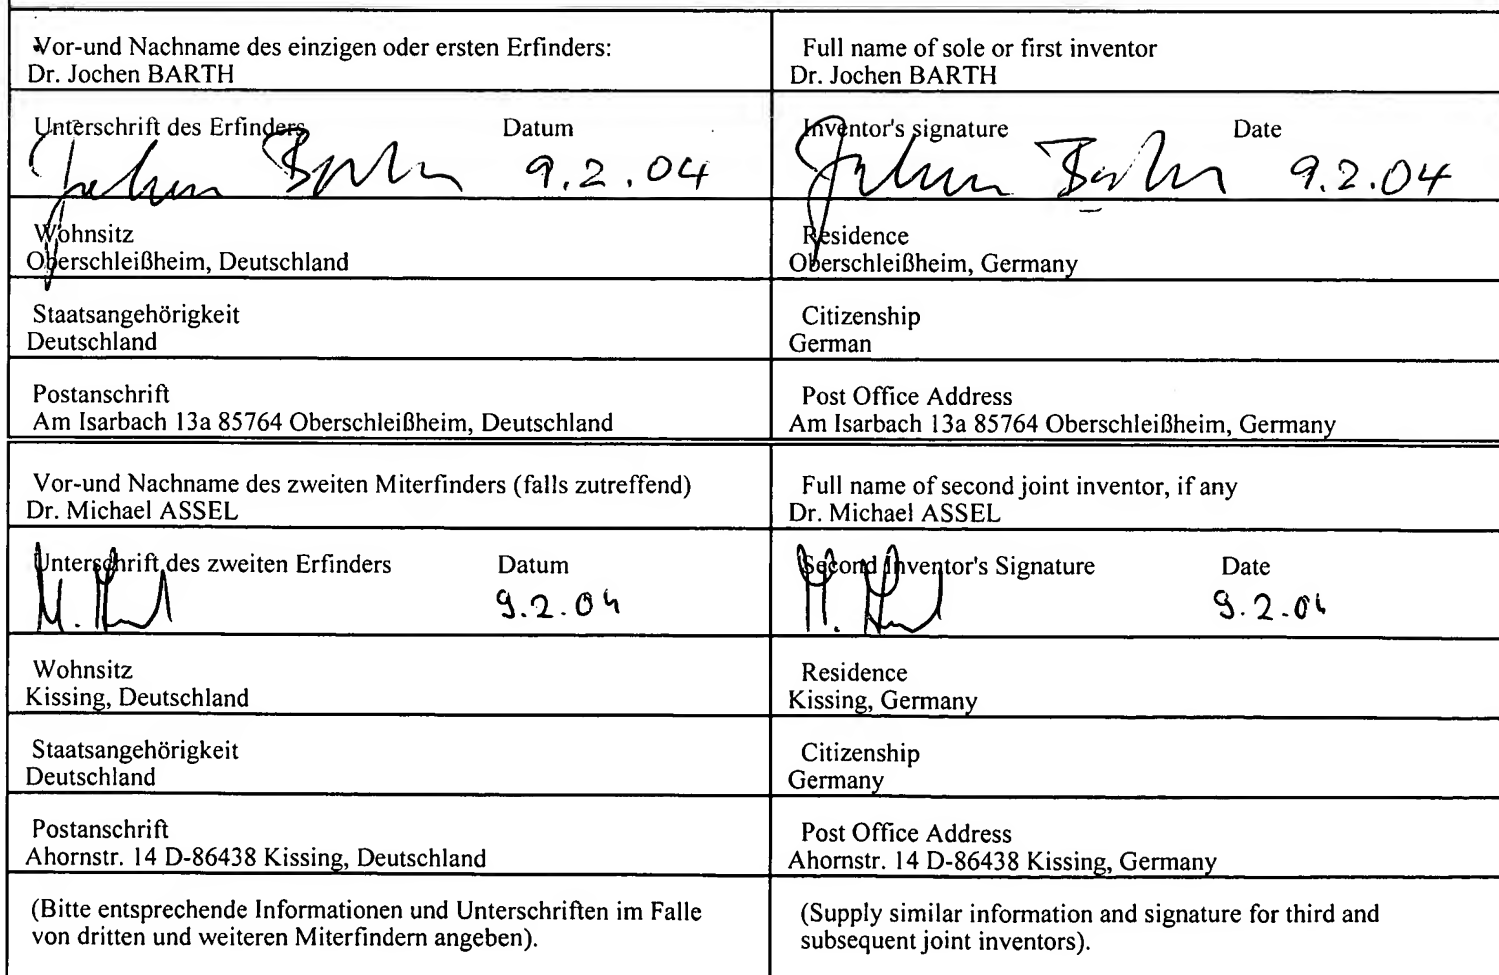 Vor-und Nachname des einzigen oder ersten Erfinders:
Dr. Jochen BARTH
Full name of sole or first inventor
Dr. Jochen BARTH
Unterschrift des Erfinders Datum
Jochen Barth 9.2.04
Inventor's signature Date
Jochen Barth 9.2.04
Wohnsitz
Oberschleißheim, Deutschland
Residence
Oberschleißheim, Germany
Staatsangehörigkeit
Deutschland
Citizenship
German
Postanschrift
Am Isarbach 13a 85764 Oberschleißheim, Deutschland
Post Office Address
Am Isarbach 13a 85764 Oberschleißheim, Germany
Vor-und Nachname des zweiten Miterfinders (falls zutreffend)
Dr. Michael ASSEL
Full name of second joint inventor, if any
Dr. Michael ASSEL
Unterschrift des zweiten Erfinders Datum
M. 9.2.04
Second Inventor's Signature Date
M. 9.2.04
Wohnsitz
Kissing, Deutschland
Residence
Kissing, Germany
Staatsangehörigkeit
Deutschland
Citizenship
Germany
Postanschrift
Ahornstr. 14 D-86438 Kissing, Deutschland
Post Office Address
Ahornstr. 14 D-86438 Kissing, Germany
(Bitte entsprechende Informationen und Unterschriften im Falle
von dritten und weiteren Miterfindern angeben).
(Supply similar information and signature for third and
subsequent joint inventors).